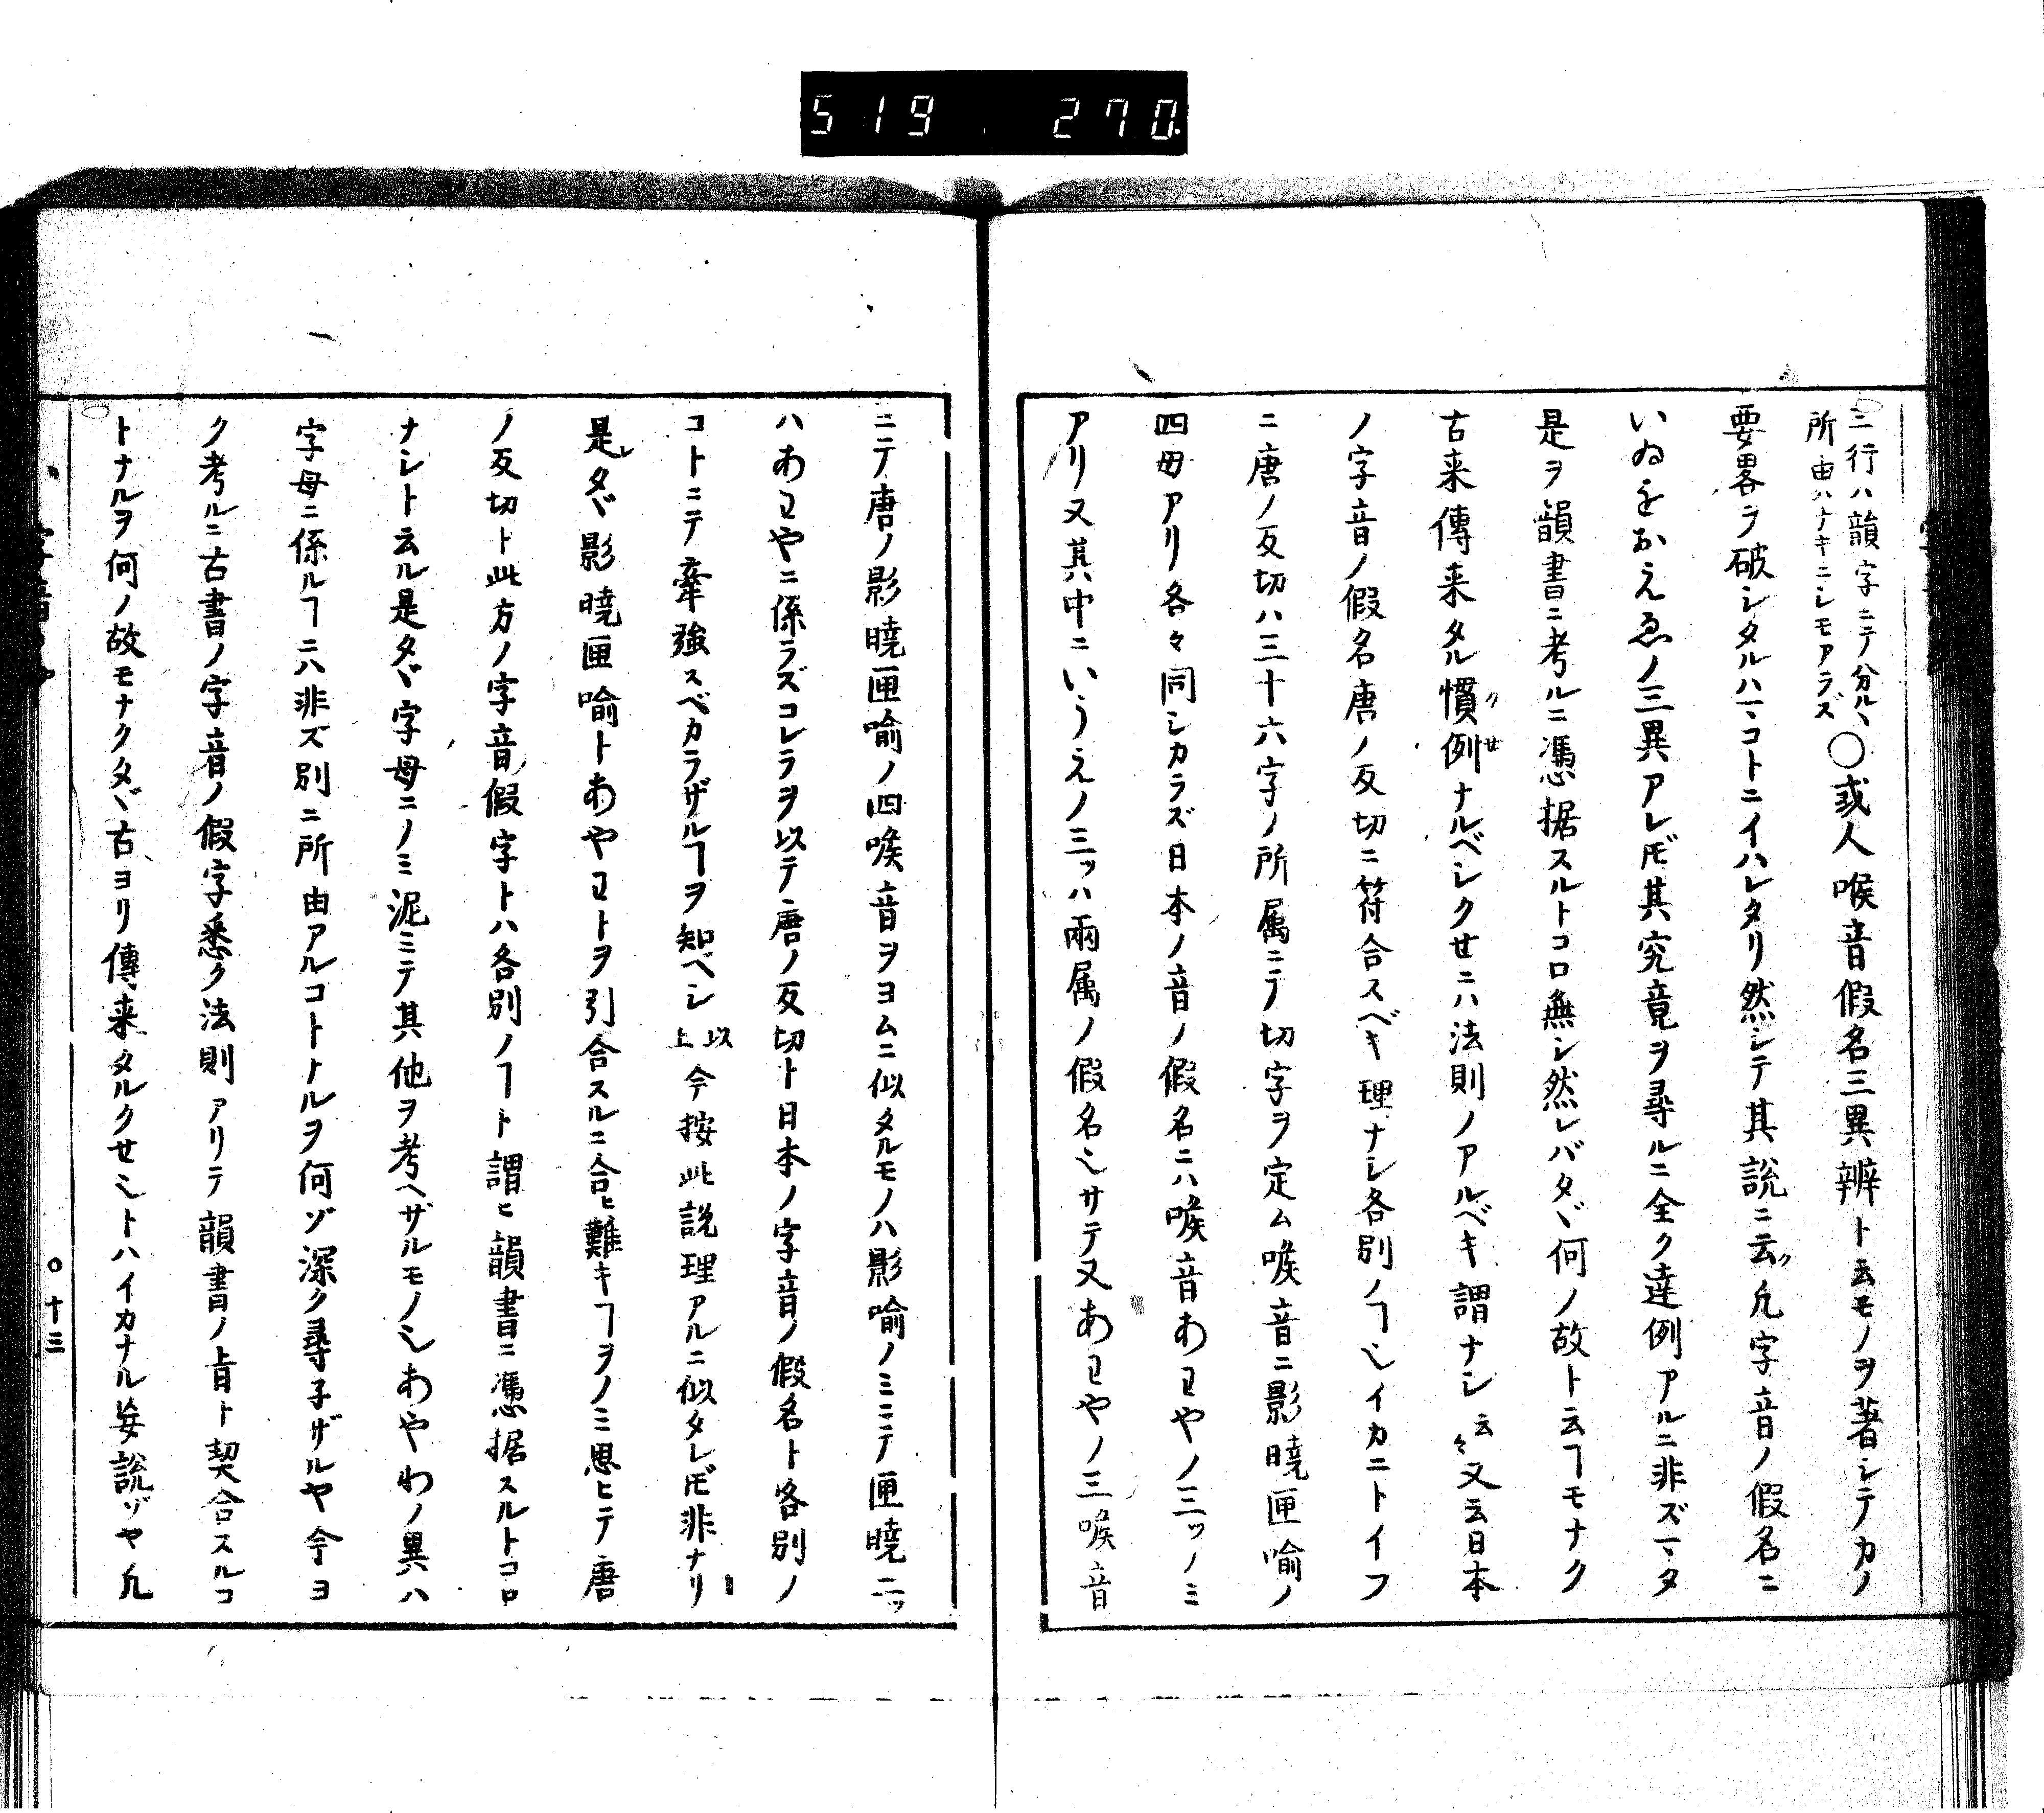 519 270
三行ハ韻字ニテ分ルヽ
所由ハナキニシモアラズ
〇或人喉音假名三異辨ト云モノヲ著シテカノ
要畧ヲ破シタルハマヽコトニイハレタリ然シテ其説ニ云ク凡字音ノ假名ニ
いゐをおえゑノ三異アレドモ其究竟ヲ尋ルニ全ク違例アルニ非ズマヽタ
是ヲ韻書ニ考ルニ憑据スルトコロ無シ然レバタヾ何ノ故ト云ヿモナク
古来傳来タル慣例ナルベシクセニハ法則ノアルベキ謂ナシ云々又云日本
クせ
ノ字音ノ假名唐ノ反切ニ符合スベキ理ナシ各別ノヿ乄イカニトイフ
ニ唐ノ反切ハ三十六字ノ所属ニテ切字ヲ定ム喉音ニ影曉匣喻ノ
四母アリ各々同シカラズ日本ノ音ノ假名ニハ喉音あわやノ三ツノミ
アリ又其中ニいうえノ三ツハ兩属ノ假名乄サテ又あわやノ三喉音
ニテ唐ノ影曉匣喻ノ四喉音ヲヨムニ似タルモノハ影喻ノミニテ匣曉二ツ
ハあわやニ係ラズコレラヲ以テ唐ノ反切ト日本ノ字音ノ假名ト各別ノ
コトニテ牽強スベカラザルヿヲ知ベシ以上今按此説理アルニ似タレドモ非ナリ
是レタヾ影曉匣喻トあやわトヲ引合スルニ合ヒ難キヿヲノミ思ヒテ唐
ノ反切ト此方ノ字音假字トハ各別ノヿト謂ヒ韻書ニ憑据スルトコロ
ナシト云ル是タヾ字母ニノミ泥ミテ其他ヲ考ヘザルモノ乄あやわノ異ハ
字母ニ係ルヿニハ非ズ別ニ所由アルコトナルヲ何ゾ深ク尋子ザルヤ今ヨ
ク考ルニ古書ノ字音ノ假字悉ク法則アリテ韻書ノ旨ト契合スルコ
トナルヲ何ノ故モナクタヾ古ヨリ傳来タルクセ乄トハイカナル妄説ゾヤ凡
〇十三